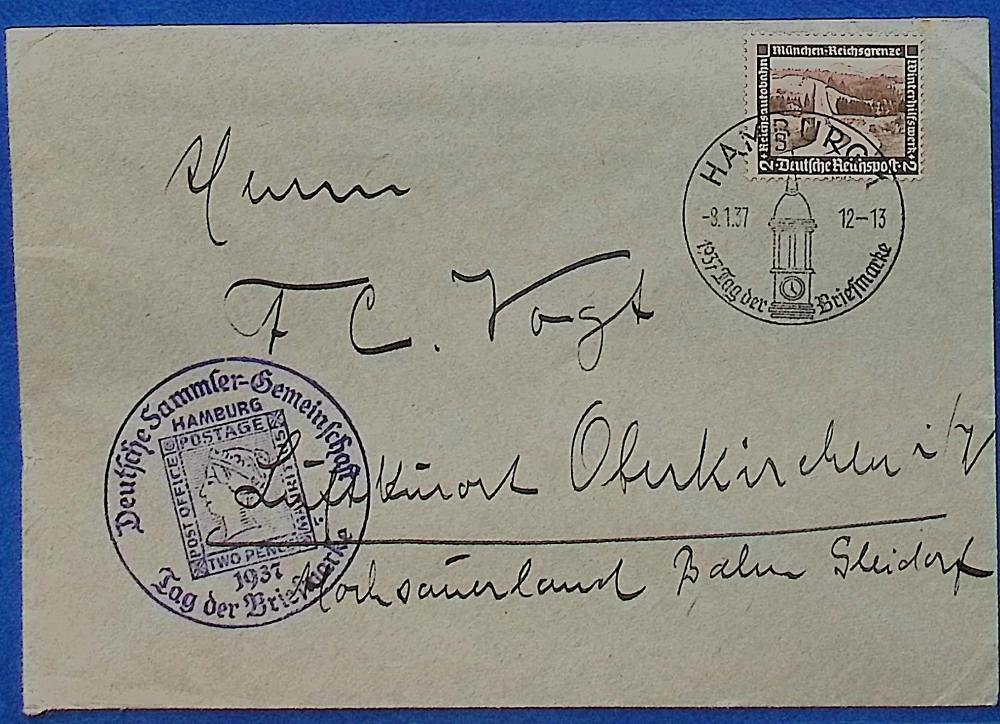 München-Reichsgrenze
Reichsautobahn
Winterhilfswerk
2 · Deutsche Reichspost · 2
HAMBURG 1
-8.1.37 12-13
1937 Tag der Briefmarke
Herrn
F C. Vogt
Luftkurort Oberkirchen i/W
Hochsauerland Bahn Gleidorf
Deutsche Sammler-Gemeinschaft
HAMBURG
POSTAGE
POST OFFICE
MAURITIUS
TWO PENCE
1937
Tag der Briefmarke